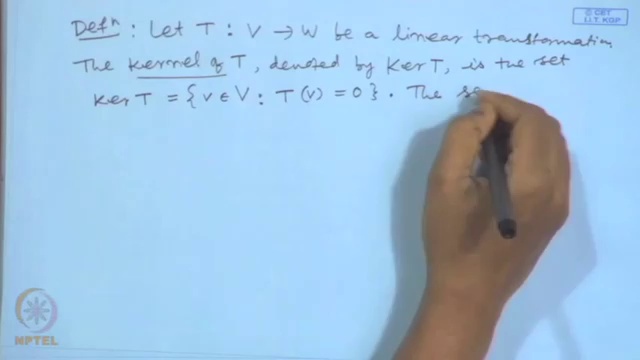 © CET
I.I.T. KGP
Defⁿ : Let T : V → W be a linear transformation
The kernel of T, denoted by Ker T, is the set
Ker T = { v ∈ V : T(v) = 0 } . The se
NPTEL